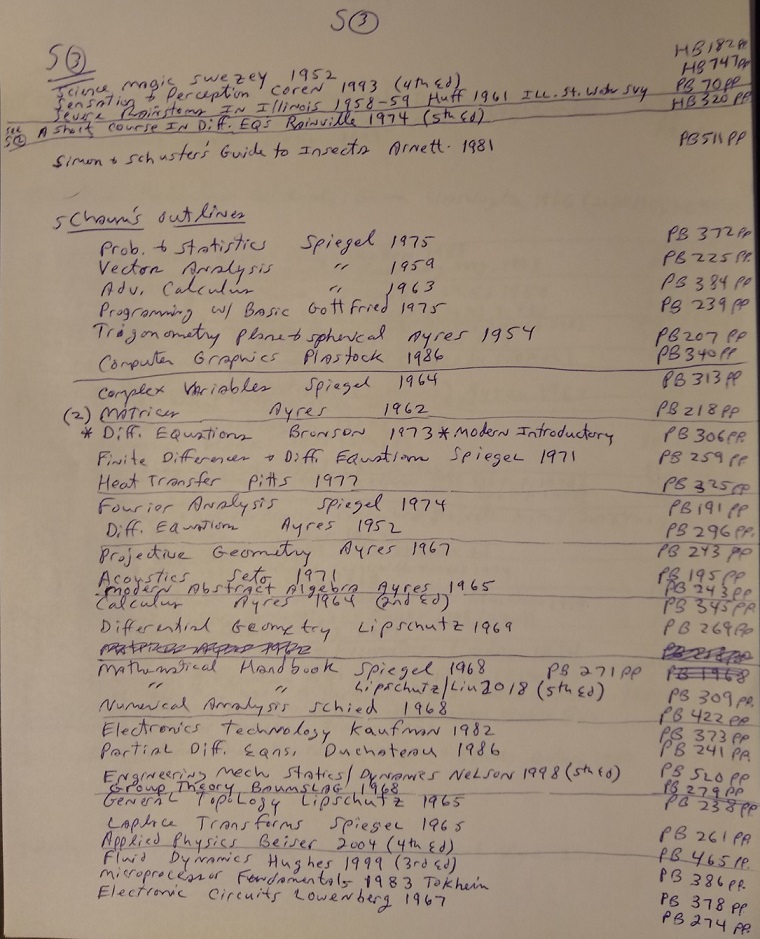 S③
S③
Science Magic Swezey 1952 HB 182 pp
Sensation & Perception Coren 1993 (4th Ed) HB 747 pp
Severe Rainstorms IN Illinois 1958-59 Huff 1961 ILL. St. Water Svy PB 70 pp
See S② A Short Course IN Diff. EQ's Rainville 1974 (5th Ed) HB 320 pp
Simon & Schuster's Guide to Insects Arnett 1981 PB 511 pp
Schaum's Outlines
Prob. & Statistics Spiegel 1975 PB 372 pp
Vector Analysis " 1959 PB 225 pp.
Adv. Calculus " 1963 PB 384 pp
Programming w/ Basic Gottfried 1975 PB 239 pp
Trigonometry Plane & spherical Ayres 1954 PB 207 pp
Computer Graphics Plastock 1986 PB 340 pp
Complex Variables Spiegel 1964 PB 313 pp
(2) Matrices Ayres 1962 PB 218 pp
* Diff. Equations Bronson 1973 * Modern Introductory PB 306 pp.
Finite Differences & Diff. Equations Spiegel 1971 PB 259 pp
Heat Transfer Pitts 1977 PB 325 pp
Fourier Analysis Spiegel 1974 PB 191 pp
Diff. Equations Ayres 1952 PB 296 pp.
Projective Geometry Ayres 1967 PB 243 pp
Acoustics Seto 1971 PB 195 pp
Modern Abstract Algebra Ayres 1965 PB 243 pp
Calculus Ayres 1964 (2nd Ed) PB 345 pp
Differential Geometry Lipschutz 1969 PB 269 pp
Mathematical Handbook Spiegel 1968 PB 271 pp PB 1968
" " Lipschutz/Liu 2018 (5th Ed) PB 309 pp.
Numerical Analysis Schied 1968 PB 422 pp
Electronics Technology Kaufman 1982 PB 373 pp
Partial Diff. Eqns. Duchateau 1986 PB 241 pp
Engineering Mech Statics/Dynames Nelson 1998 (5th Ed) PB 520 pp
Group Theory Baumslag 1968 PB 279 pp
General Topology Lipschutz 1965 PB 238 pp
Laplace Transforms Spiegel 1965 PB 261 pp
Applied Physics Beiser 2004 (4th Ed) PB 465 pp.
Fluid Dynamics Hughes 1999 (3rd Ed) PB 386 pp.
Microprocessor Fundamentals 1983 Tokheim PB 378 pp
Electronic Circuits Lowenberg 1967 PB 274 pp.